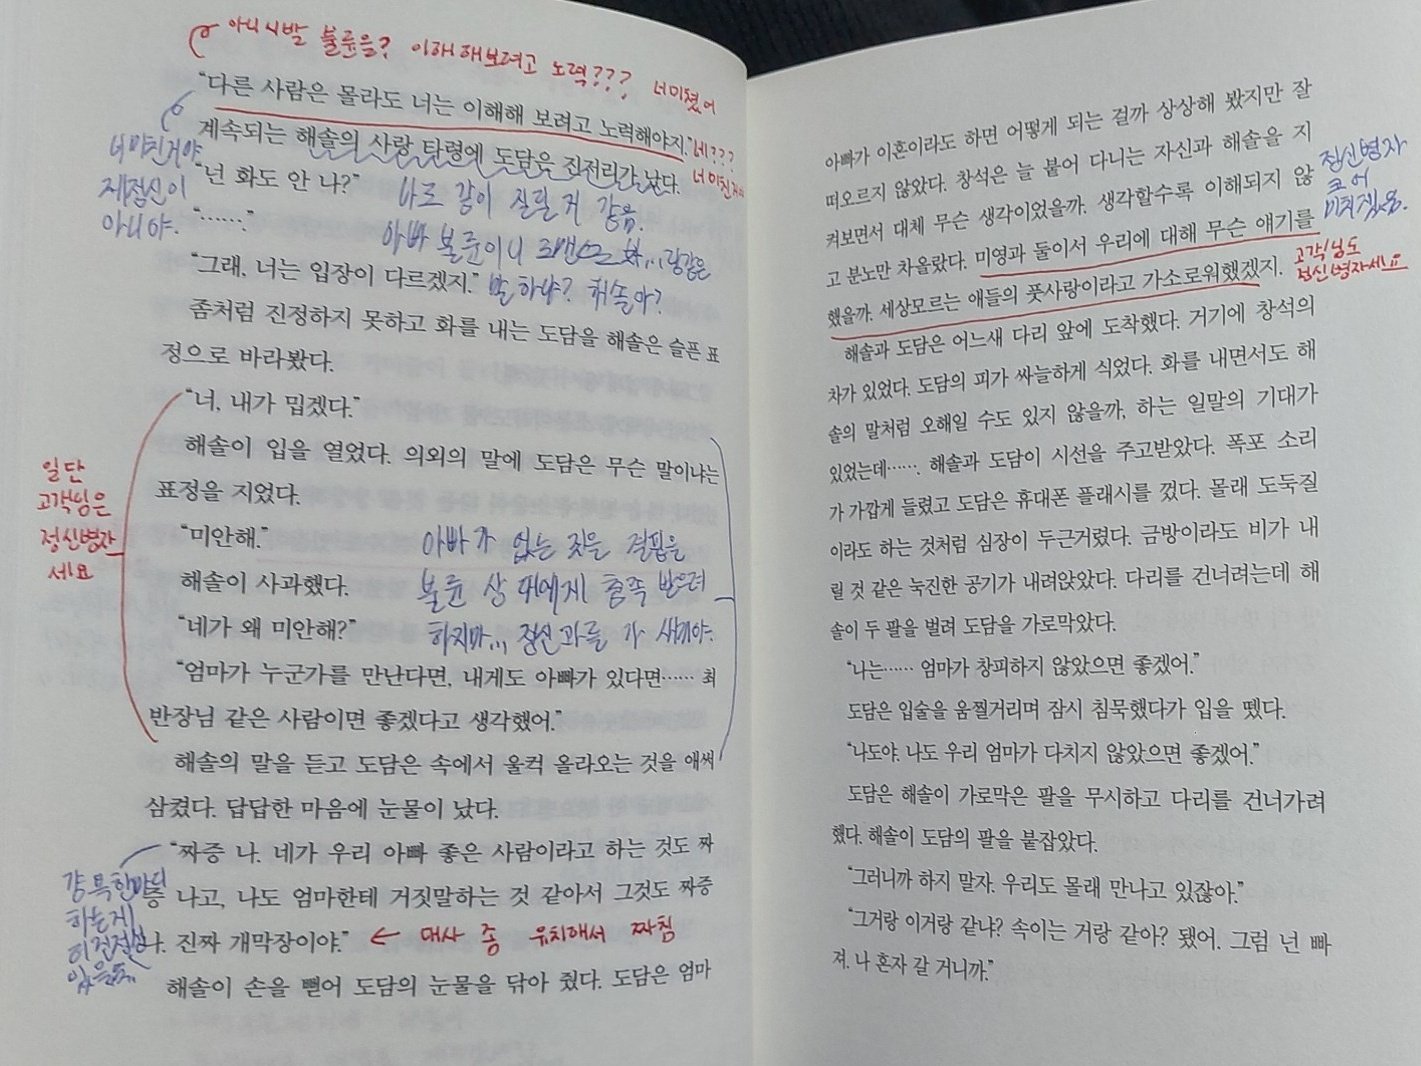 아니 시발 불륜을? 이해 해보려고 노력??? 너미쳤어
“다른 사람은 몰라도 너는 이해해 보려고 노력해야지.”
네???
너 미친거야
계속되는 해솔의 사랑 타령에 도담은 진저리가 났다.
너 미친거야
제정신이
아니야.
“넌 화도 안 나?”
나도 같이 질릴 거 같음.
“……”
아빠 불륜이니
“그래, 너는 입장이 다르겠지.”
말 하냐? 해솔아?
좀처럼 진정하지 못하고 화를 내는 도담을 해솔은 슬픈 표
정으로 바라봤다.
“너, 내가 밉겠다.”
해솔이 입을 열었다. 의외의 말에 도담은 무슨 말이냐는
표정을 지었다.
일단
고객님은
정신병자
세요
“미안해.”
해솔이 사과했다.
“네가 왜 미안해?”
아빠가 없는 것을 결핍을
불륜 상대에게 충족 받으려
하지마... 정신과를 가 새끼야.
“엄마가 누군가를 만난다면, 내게도 아빠가 있다면…… 최
반장님 같은 사람이면 좋겠다고 생각했어.”
해솔의 말을 듣고 도담은 속에서 울컥 올라오는 것을 애써
삼켰다. 답답한 마음에 눈물이 났다.
“짜증 나. 네가 우리 아빠 좋은 사람이라고 하는 것도 짜
증 나고, 나도 엄마한테 거짓말하는 것 같아서 그것도 짜증
나. 진짜 개막장이야.”
← 대사 좀 유치해서 짜침
걍 욕한마디
하는게
더
해솔이 손을 뻗어 도담의 눈물을 닦아 줬다. 도담은 엄마
아빠가 이혼이라도 하면 어떻게 되는 걸까 상상해 봤지만 잘
떠오르지 않았다. 창석은 늘 붙어 다니는 자신과 해솔을 지
켜보면서 대체 무슨 생각이었을까. 생각할수록 이해되지 않
고 분노만 차올랐다. 미영과 둘이서 우리에 대해 무슨 얘기를
했을까. 세상모르는 애들의 풋사랑이라고 가소로워했겠지.
정신병자
미쳐
고객님도
정신병자세요
해솔과 도담은 어느새 다리 앞에 도착했다. 거기에 창석의
차가 있었다. 도담의 피가 싸늘하게 식었다. 화를 내면서도 해
솔의 말처럼 오해일 수도 있지 않을까, 하는 일말의 기대가
있었는데……. 해솔과 도담이 시선을 주고받았다. 폭포 소리
가 가깝게 들렸고 도담은 휴대폰 플래시를 껐다. 몰래 도둑질
이라도 하는 것처럼 심장이 두근거렸다. 금방이라도 비가 내
릴 것 같은 눅진한 공기가 내려앉았다. 다리를 건너려는데 해
솔이 두 팔을 벌려 도담을 가로막았다.
“나는…… 엄마가 창피하지 않았으면 좋겠어.”
도담은 입술을 움찔거리며 잠시 침묵했다가 입을 뗐다.
“나도야. 나도 우리 엄마가 다치지 않았으면 좋겠어.”
도담은 해솔이 가로막은 팔을 무시하고 다리를 건너가려
했다. 해솔이 도담의 팔을 붙잡았다.
“그러니까 하지 말자. 우리도 몰래 만나고 있잖아.”
“그거랑 이거랑 같냐? 속이는 거랑 같아? 됐어. 그럼 넌 빠
져. 나 혼자 갈 거니까.”